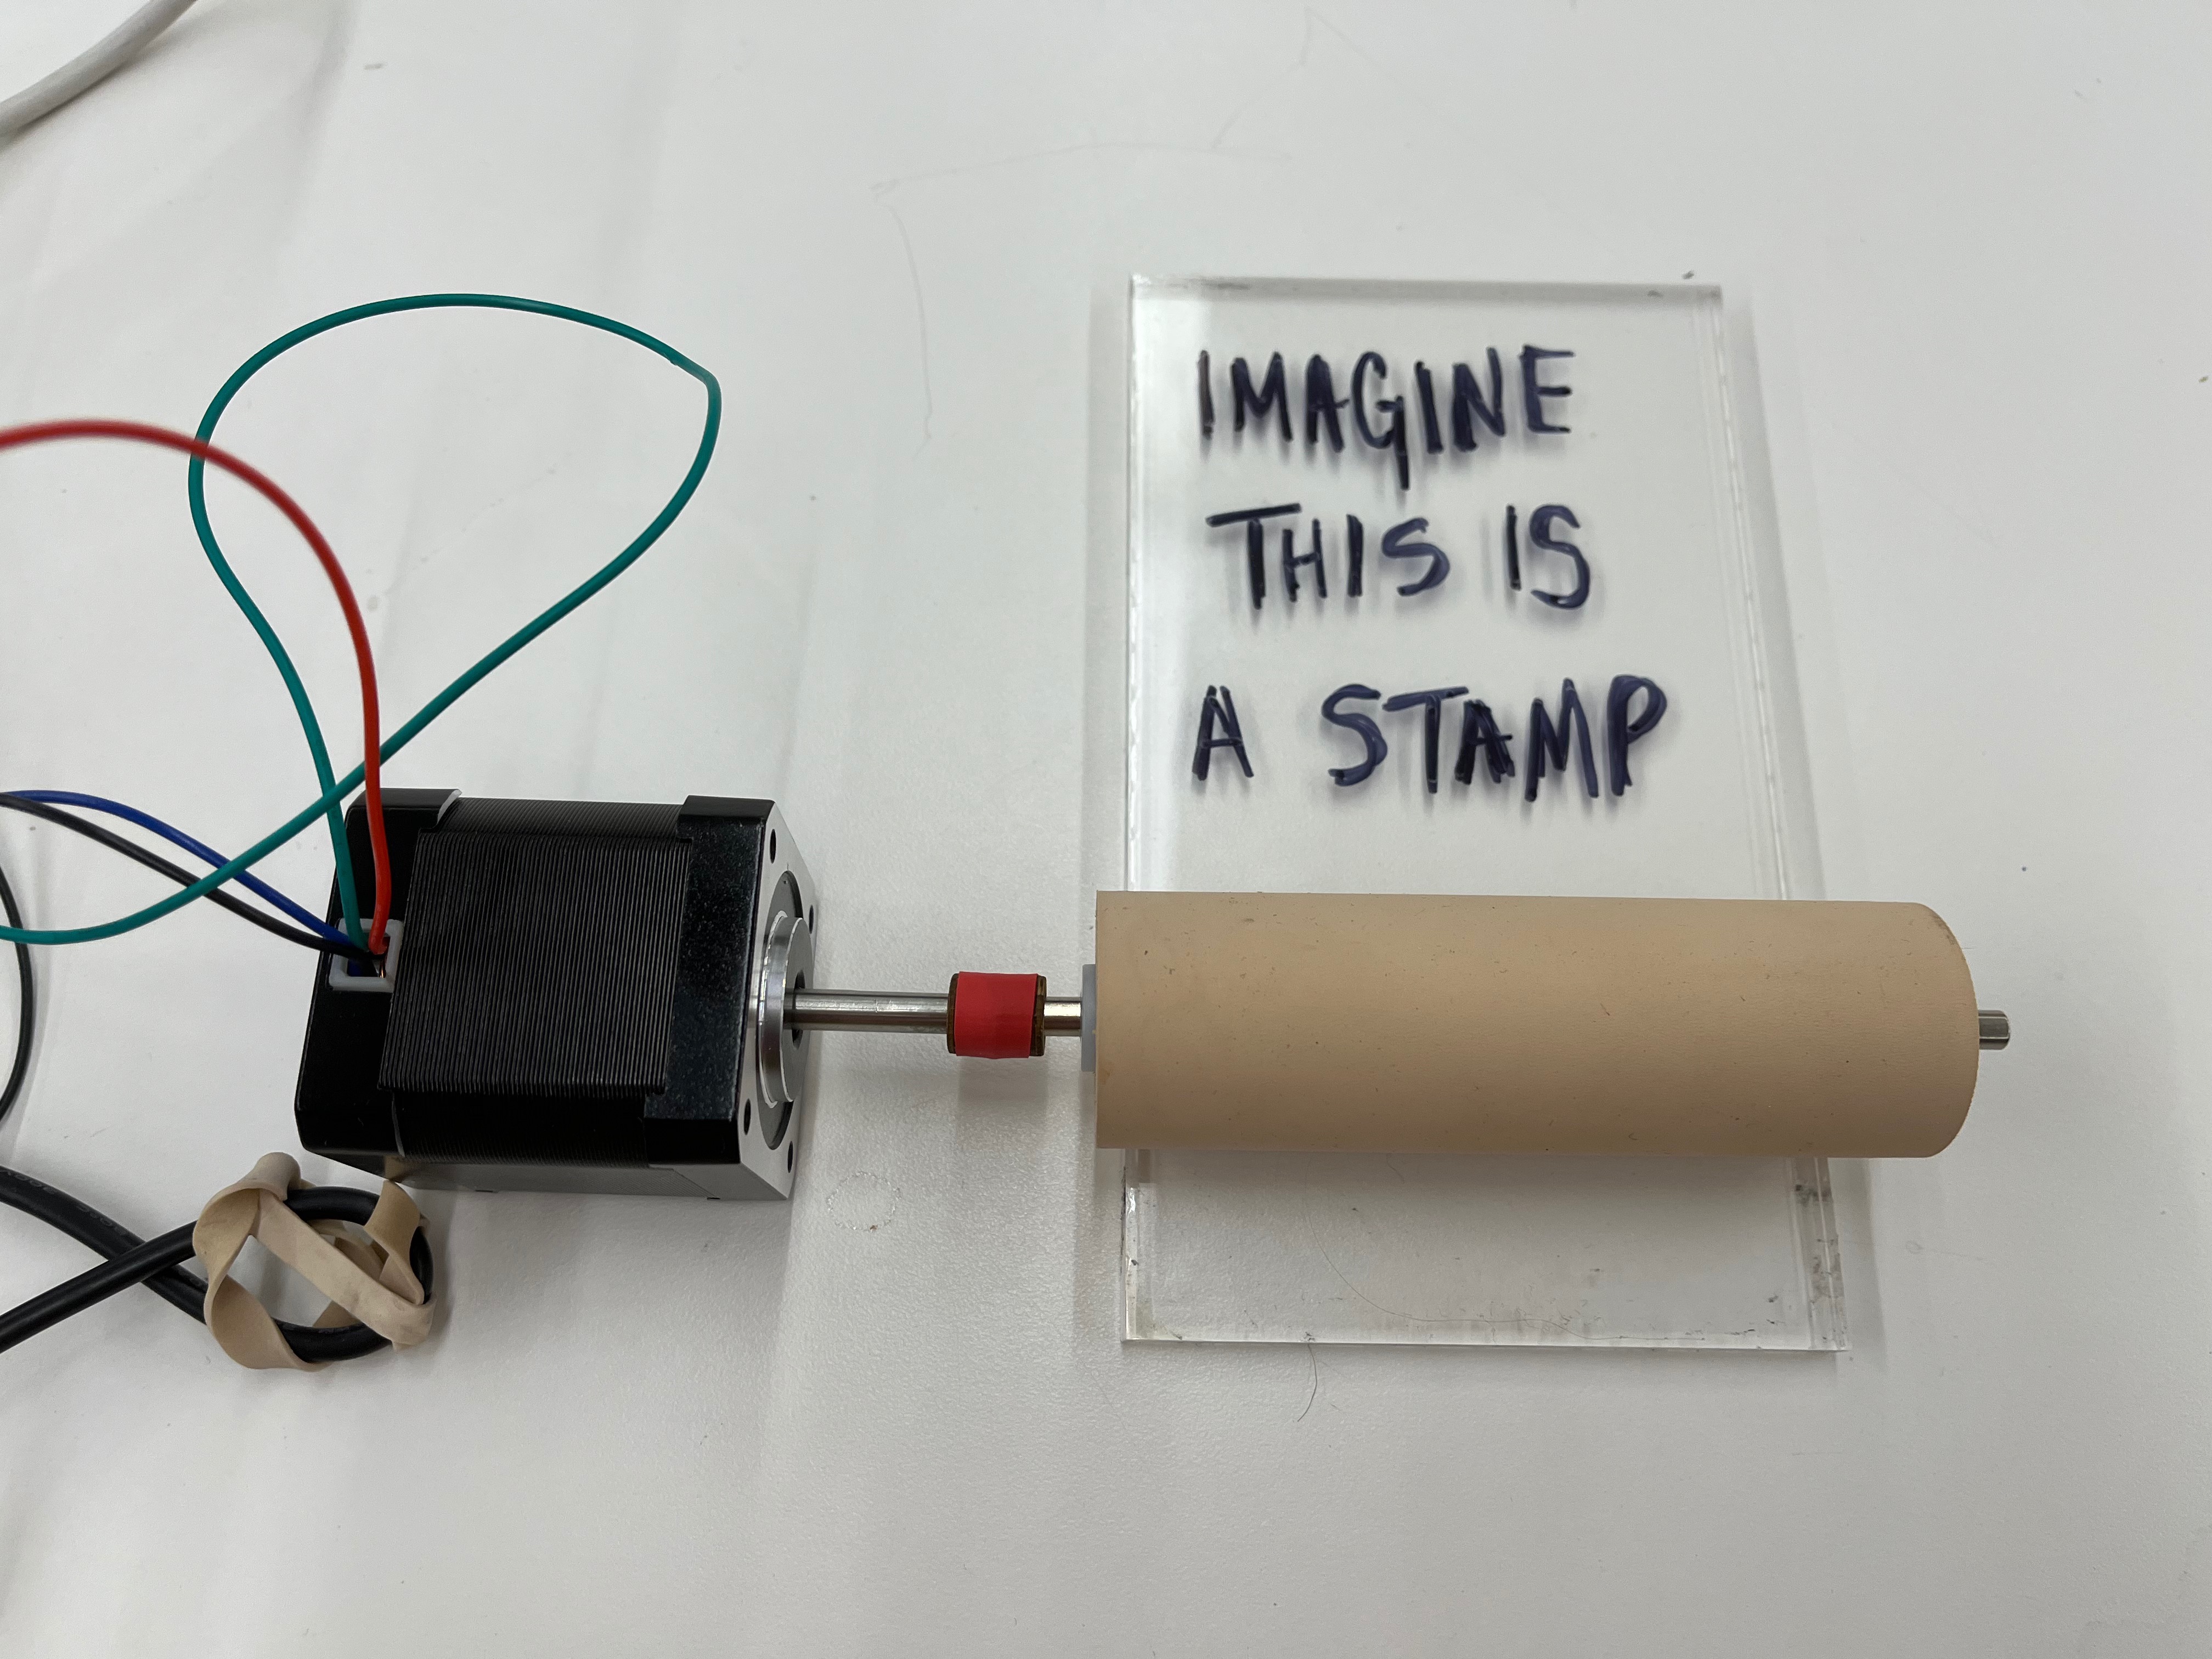 IMAGINE
THIS IS
A STAMP